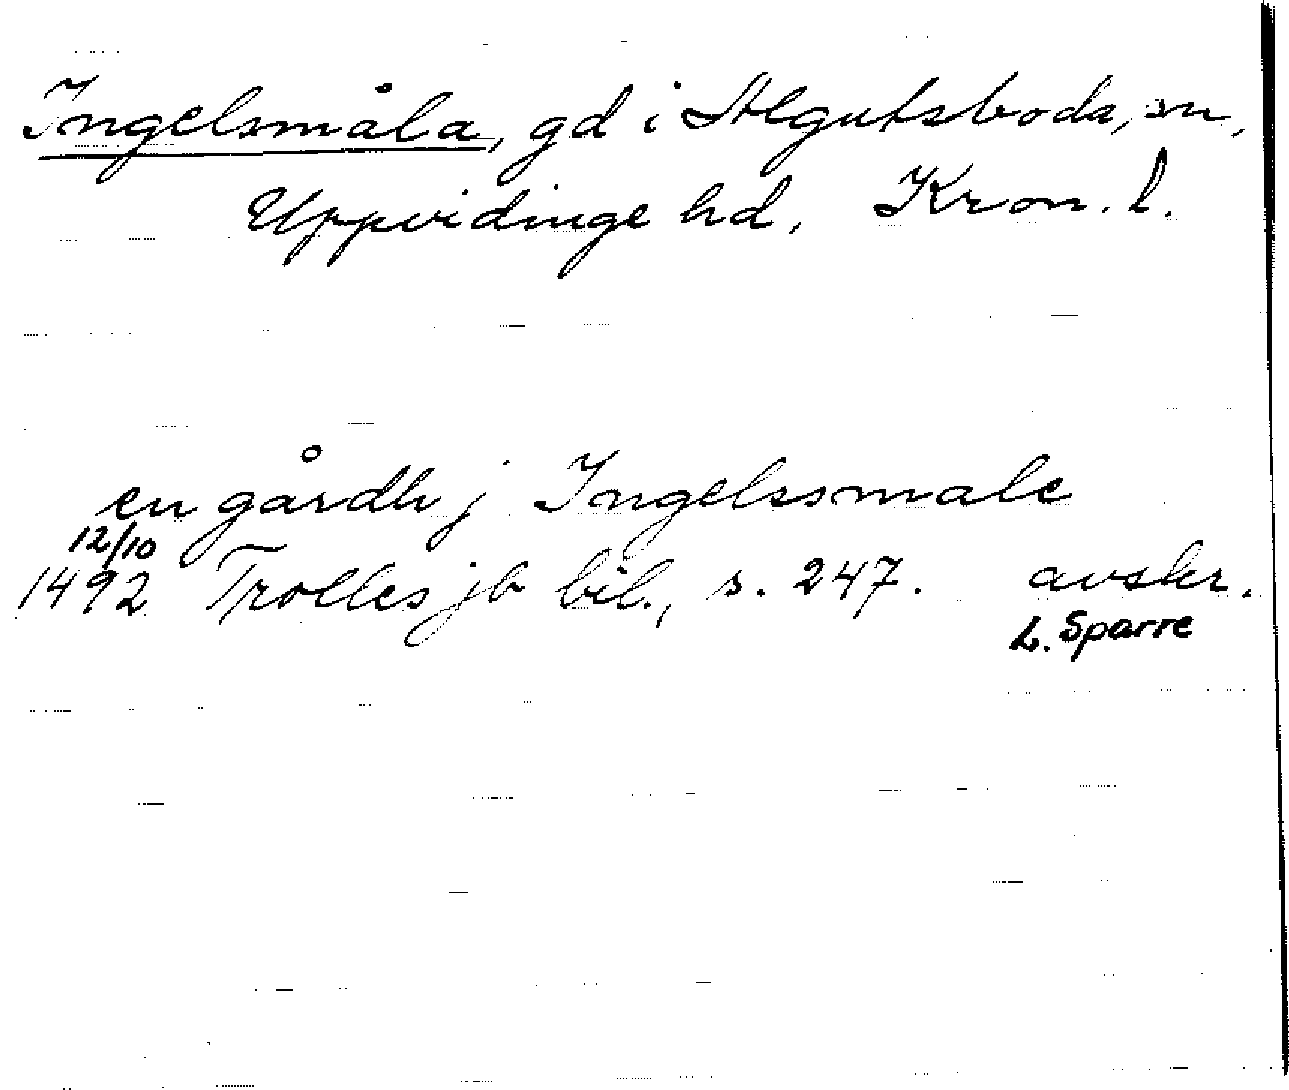 Ingelsmåla, gd i Algutsboda, sn,
Uppvidinge hd, Kron. l.
en gårdh j Ingelssmale
12/10
1492 Trolles jb bil., s. 247. avskr.
L. Sparre